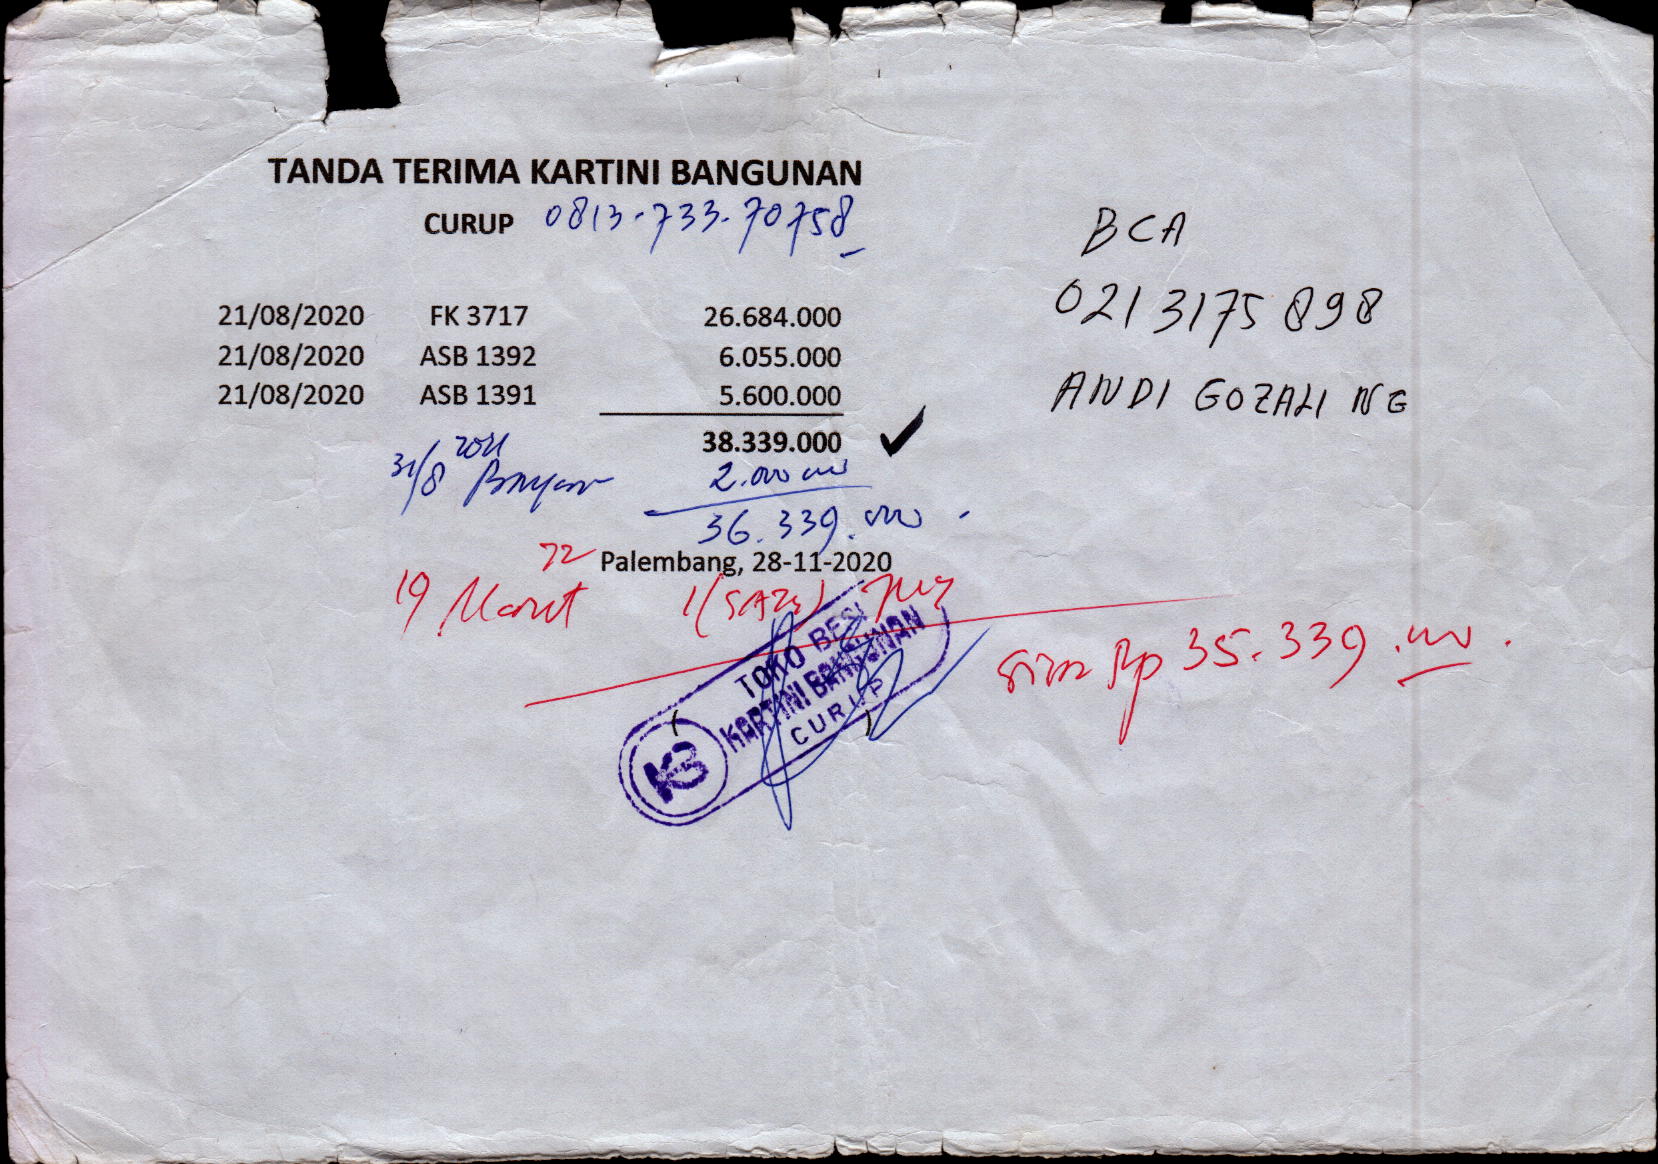 TANDA TERIMA KARTINI BANGUNAN
CURUP 0813-733-70758
BCA
0213175898
ANDI GOZALI NG
21/08/2020 FK 3717 26.684.000
21/08/2020 ASB 1392 6.055.000
21/08/2020 ASB 1391 5.600.000
38.339.000
31/8 2021 2.000.000
36.339.000
Palembang, 28-11-2020
19 Maret 22 1 (SATU)
Rp 35.339.000
TOKO BESI
KARTINI BANGUNAN
CURUP
KB
( )